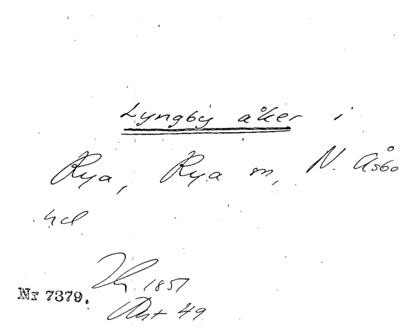 Lyngby åker i
Rya, Rya sn, N. Åsbo
hd
1851
Nr 7379.
Akt 49